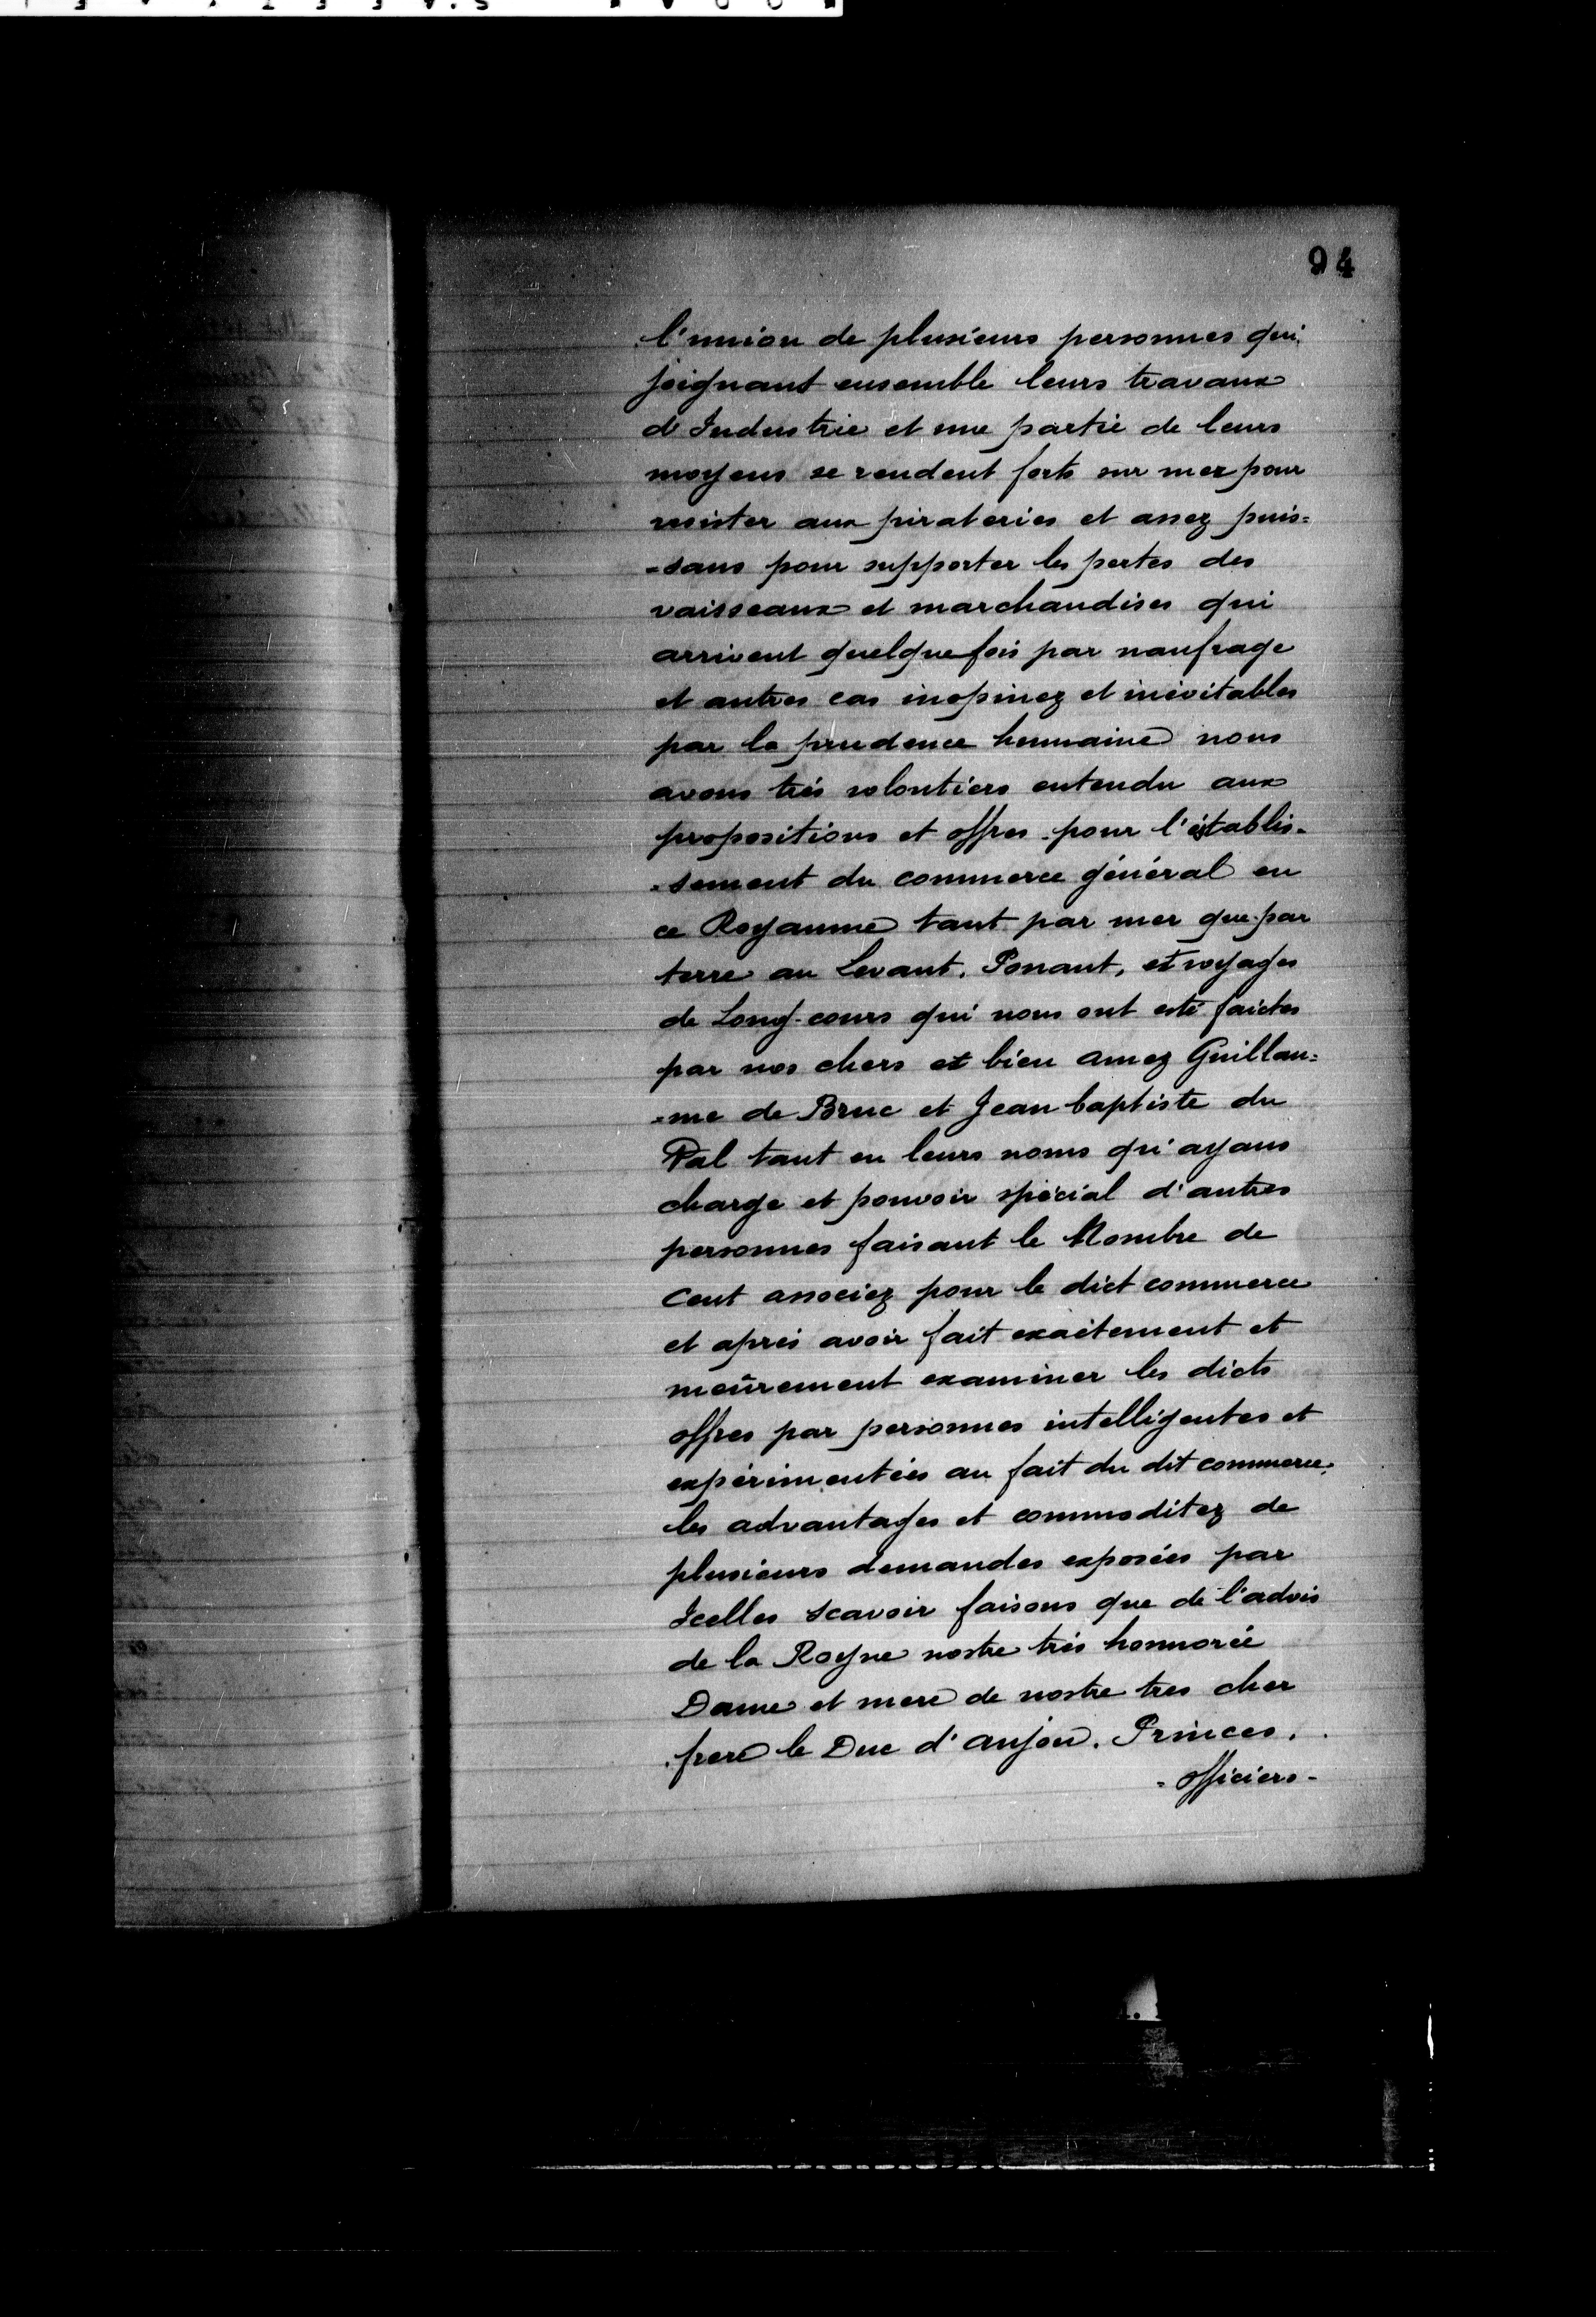 94
l'union de plusieurs personnes qui
joignant ensemble leurs travaux
d'Industrie et une partie de leurs
moyens se rendent forts sur mer pour
resister aux pirateries et assez puis=
=sans pour supporter les pertes des
vaisseaux et marchandises qui
arrivent quelquefois par naufrage
et autres cas inopinez et inévitables
par la prudence humaine nous
avons très volontiers entendu aux
propositions et offres pour l'establis-
-sement du commerce général en
ce Royaume tant par mer que par
terre au Levant, Ponant, et voyages
de Long-cours qui nous ont esté faictes
par nos chers et bien amez Guillau=
=me de Bruc et Jean baptiste du
Pal tant en leurs noms qu'ayans
charge et pouvoir spécial d'autres
personnes faisant le Nombre de
Cent associez pour le dict commerce
et après avoir fait exactement et
meûrement examiner les dicts
offres par personnes intelligentes et
expérimentées au fait du dit commerce,
les advantages et commoditez de
plusieurs demandes exposées par
Icelles scavoir faisons que de l'advis
de la Royne nostre très honnorée
Dame et mere de nostre tres cher
frere le Duc d'anjou. Princes,
- officiers -